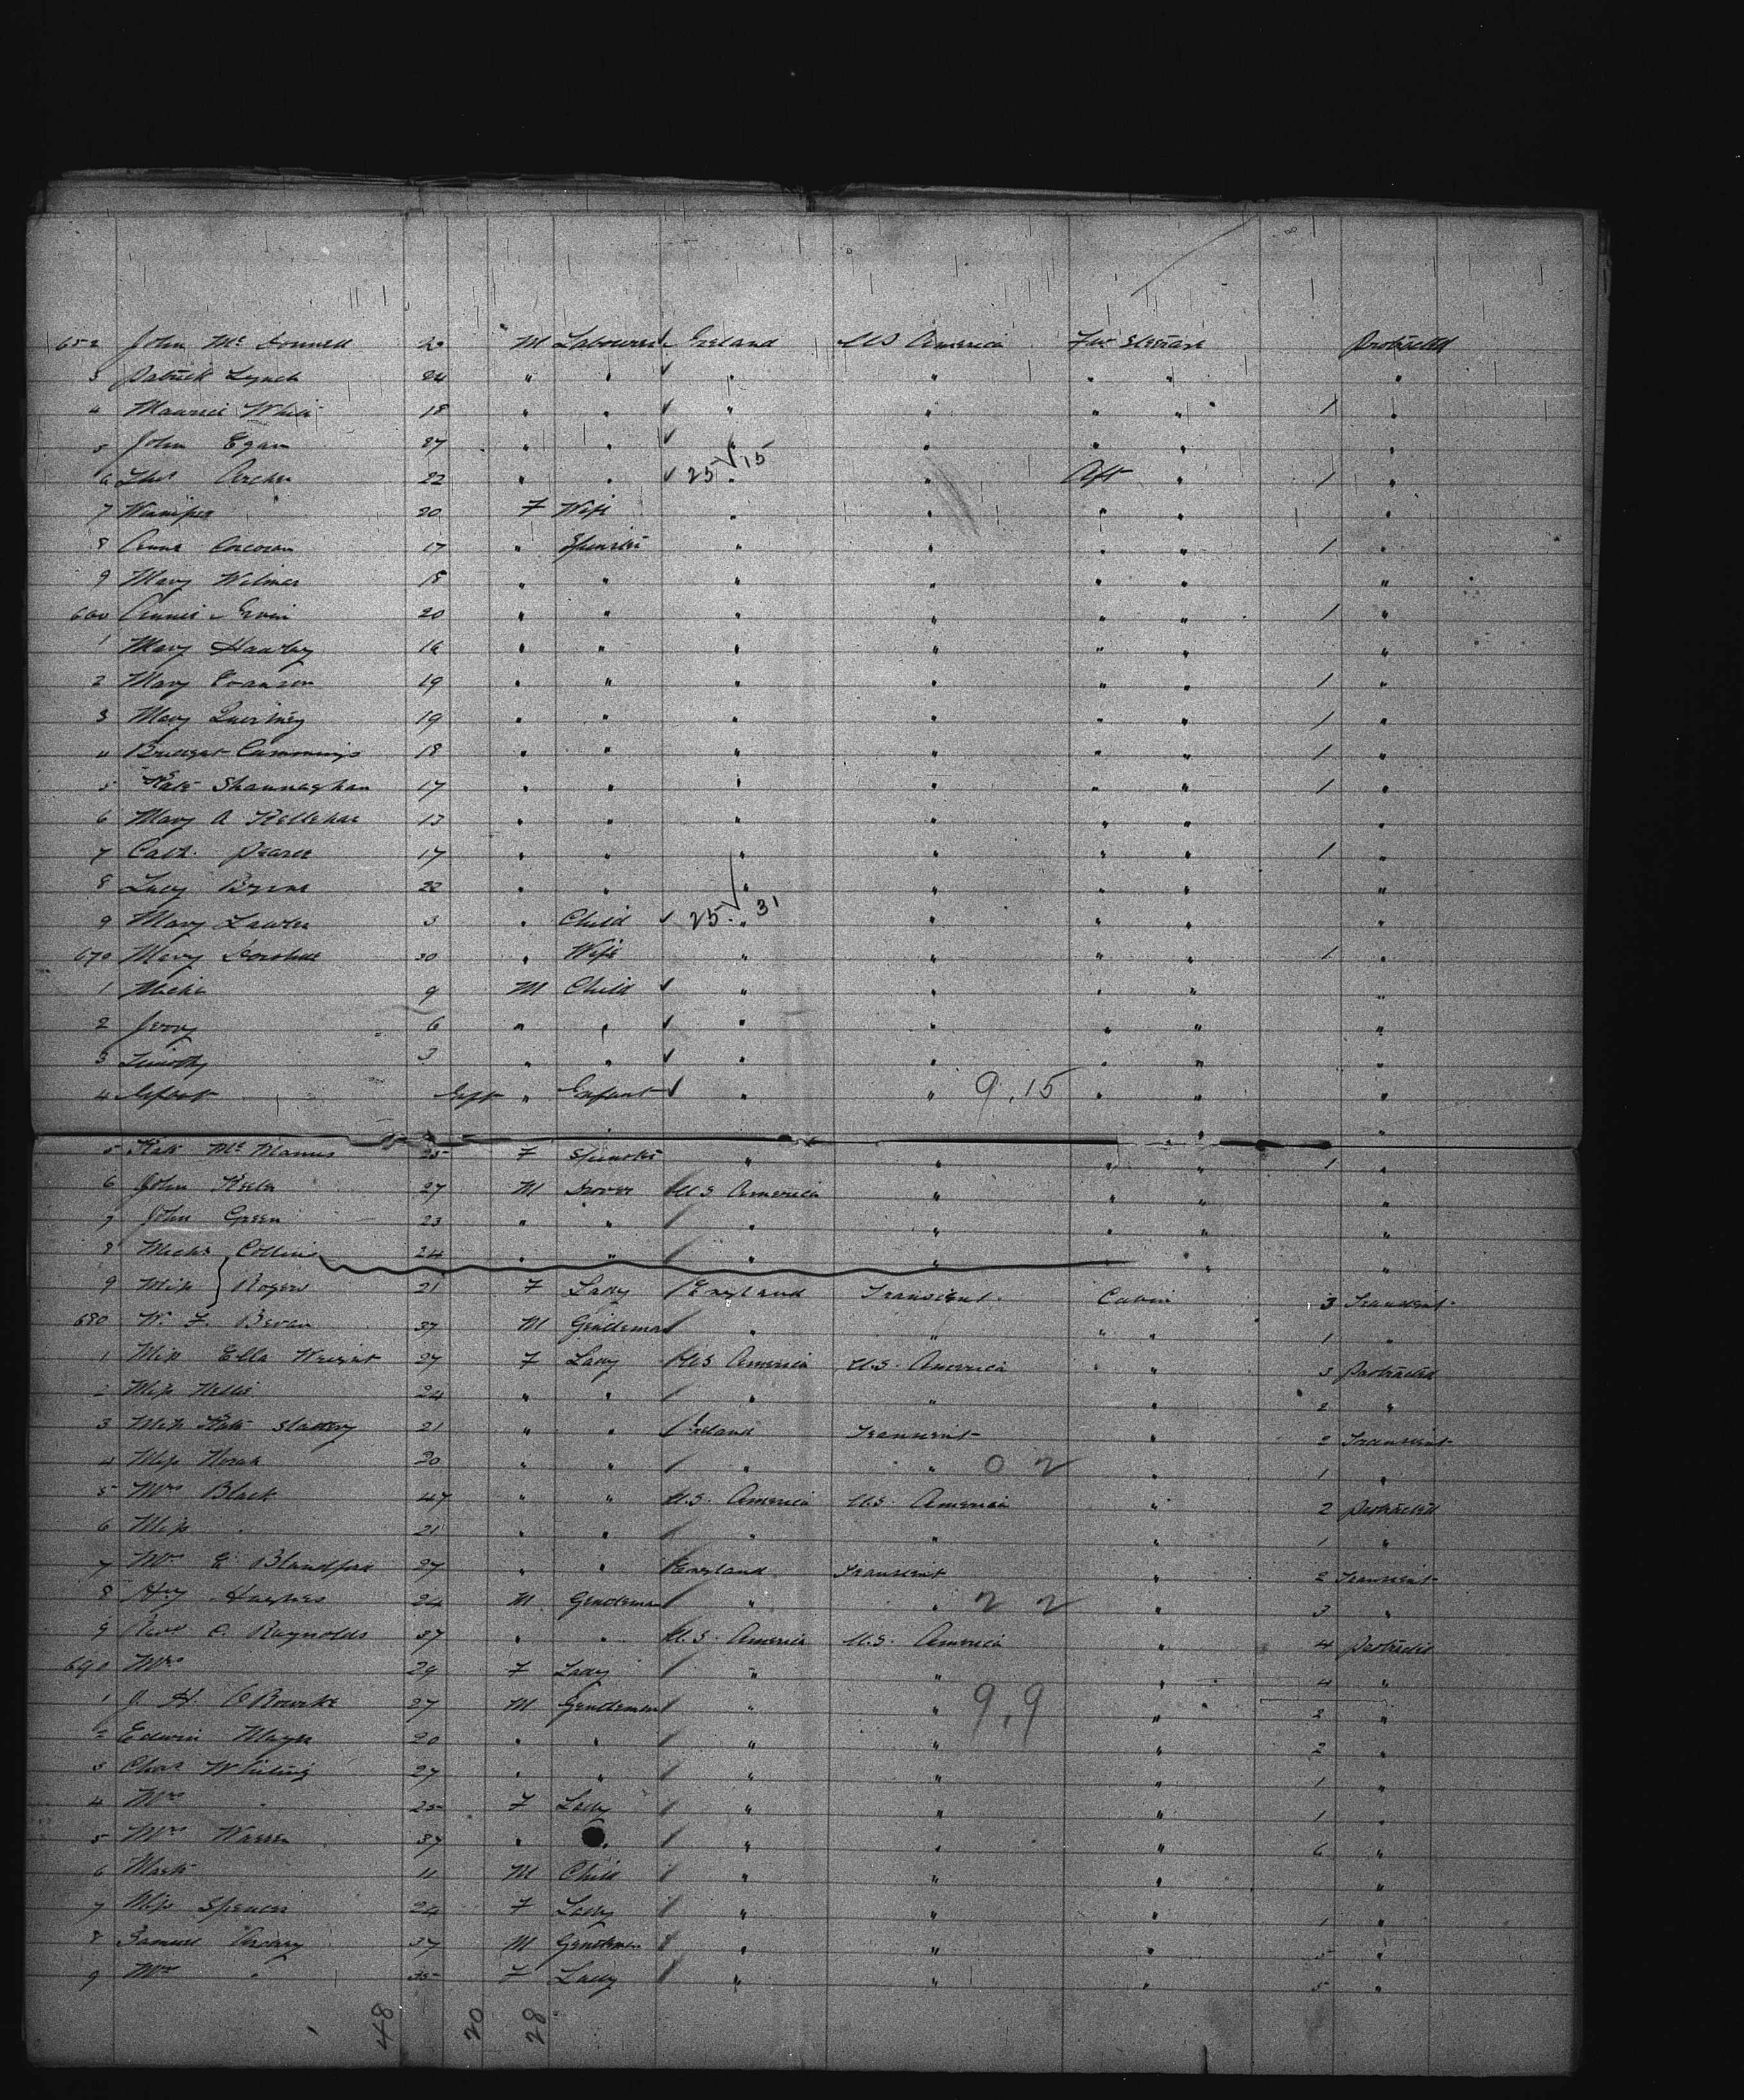 652 John Mc Donnell 20 M Labourer Ireland US America For Steerage Protracted
3 Patrick Lynch 24 " " " " " " "
4 Maurice White 18 " " " " " " 1 "
5 John Egan 27 " " " " " " "
6 Thos Archer 22 " " 25 15 " " Aft " 1 "
7 20 F Wife " " " " "
8 Anne Corcoran 17 " Spinster " " " " 1 "
9 Mary 18 " " " " " " "
660 Annie 20 " " " " " " 1 "
1 Mary Hawley 16 " " " " " " "
2 Mary 19 " " " " " " 1 "
3 Mary 19 " " " " " " 1 "
4 Bridget Cummings 18 " " " " " " 1 "
5 Kate Shaunaghan 17 " " " " " " 1 "
6 Mary A Kellehar 13 " " " " " " "
7 Cath. Pearce 17 " " " " " " 1 "
8 Lucy Byrne 22 " " " " " " "
9 Mary Lawler 3 " Child 25 31 " " " " "
670 Mary 30 " Wife " " " " 1 "
1 Michl 9 M Child " " " " "
2 Jerry 6 " " " " " " "
3 Timothy 3 " " " " " " "
4 Infant Inft " Infant " " 9.15 " " "
5 Kate Mc Manus 25 F Spinster " " " " 1 "
6 John 27 M Drover US America " " " "
7 John Green 23 " " " " " " "
8 Michl Collins 24 " " " " " " "
9 Miss Rogers 21 F Lady England Transient Cabin 3 Transient
680 W. F. Bevan 37 M Gentleman " " " " 1 "
1 Miss Ella Wright 27 F Lady US America U.S. America " " 3 Protracted
2 Miss Nellie 24 " " " " " 2 "
3 Miss Kate Slattery 21 " " Ireland Transient " 2 Transient
4 Miss Norah 20 " " " " 0 2 " 1 "
5 Mrs Black 47 " " U.S. America U.S. America " 2 Protracted
6 Miss " 21 " " " " " 1 "
7 Mrs E. Blandford 27 " " England Transient " 2 Transient
8 Hy Hughes 24 M Gentleman " " 2 2 " 3 "
9 Revd C. Reynolds 37 " " U.S. America U.S. America " 4 Protracted
690 Mrs 29 F Lady " " " 4 "
1 J. H. O'Rourke 27 M Gentleman " " 9.9 " 2 "
2 Edwin Mayer 20 " " " " " 2 "
3 Chas Whiting 27 " " " " " 1 "
4 Mrs " 25 F Lady " " " 1 "
5 Mrs Warren 37 " " " " " 6 "
6 Mark 11 M Child " " " "
7 Miss Spencer 24 F Lady " " " 1 "
8 Samuel 37 M Gentleman " " " 5 "
9 Mrs " 35 F Lady " " " 5 "
48 20 28